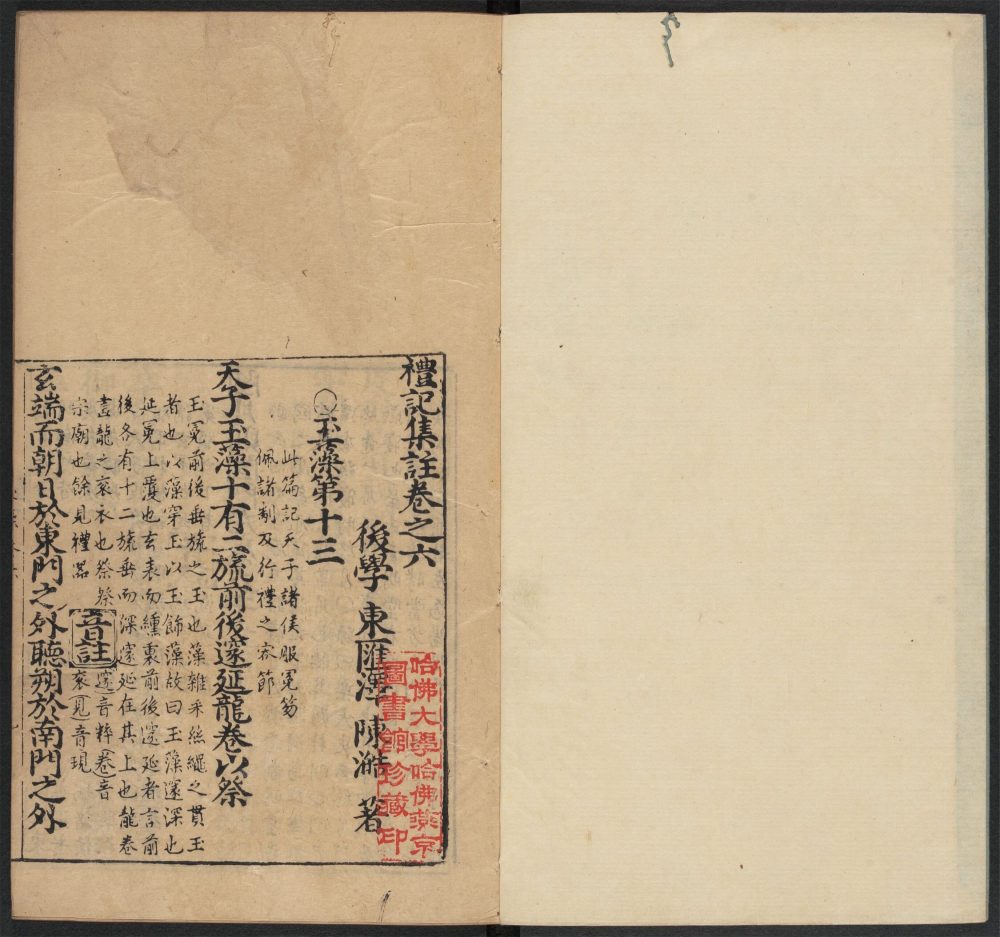 禮記集註卷之六
後學東匯澤陳澔著
〇玉藻第十三
此篇記天子諸侯服冕笏
佩諸制及行禮之容節
天子玉藻十有二旒前後邃延龍卷以祭
玉冕前後垂旒之玉也藻雜采絲繩之貫玉
者也以藻穿玉以玉飾藻故曰玉藻邃深也
延冕上覆也玄表而纁裏前後邃延者言前
後各有十二旒垂而深邃延在其上也龍卷
畫龍之衮衣也祭祭
宗廟也餘見禮器
音註
邃音粹卷音
衮見音現
玄端而朝日於東門之外聽朔於南門之外
哈佛大學哈佛燕京
圖書館珍藏印